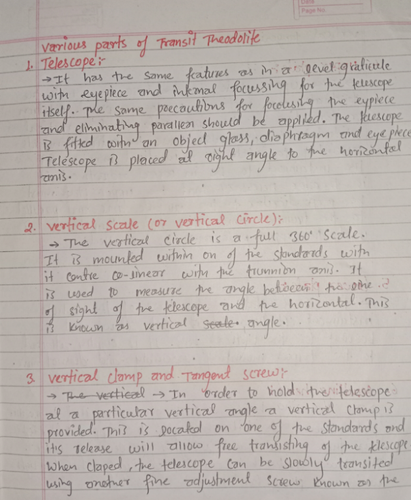 Date
Page No.
Various parts of Transit Theodolite
1. Telescope:-
→ It has the same features as in a level graticule
with eyepiece and internal focussing for the telescope
itself. The same precautions for focussing the eypiece
and eliminating parallex should be applied. The telescope
is fitted with an object glass, diaphragm and eyepiece
Telescope is placed at right angle to the horizontal
axis.
2. Vertical scale (or vertical circle):-
→ The vertical circle is a full 360° scale.
It is mounted within on of the standards with
it centre co-sinear with the trunnion axis. It
is used to measure the angle between the line
of sight of the telescope and the horizontal. This
is known as vertical scale. angle.
3. Vertical clamp and Tangent screw:-
→ The vertical → In order to hold the telescope
at a particular vertical angle a vertical clamp is
provided. This is located on one of the standards and
it's release will allow free transisting of the telescope
When claped, the telescope can be slowly transited
using another fine adjustment screw known as the